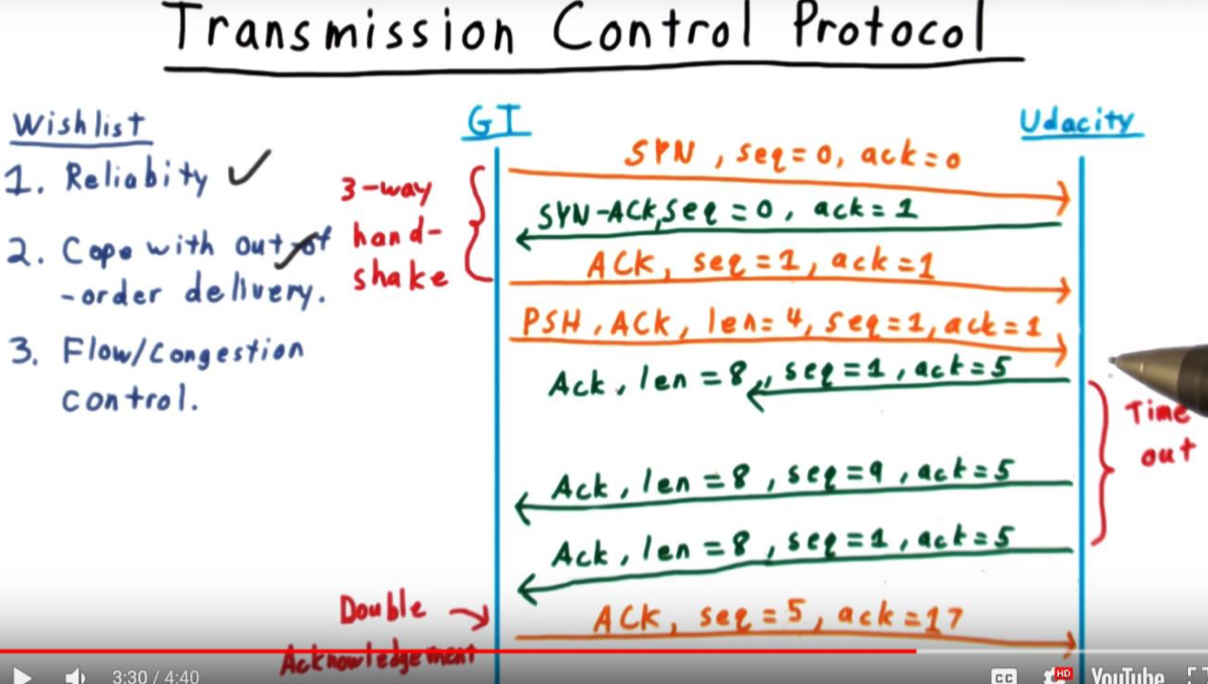 Transmission Control Protocol
Wishlist
1. Reliabity ✓
2. Cope with out of
-order delivery.
3. Flow/Congestion
control.
GT
Udacity
3-way
hand-
shake
SYN, seq=0, ack=0
SYN-ACK, seq=0, ack=1
ACK, seq=1, ack=1
PSH, ACK, len=4, seq=1, ack=1
Ack, len=8, seq=1, ack=5
Time
out
Ack, len=8, seq=9, ack=5
Ack, len=8, seq=1, ack=5
Double
Acknowledgement
ACK, seq=5, ack=17
3:30 / 4:40
CC
HD
YouTube